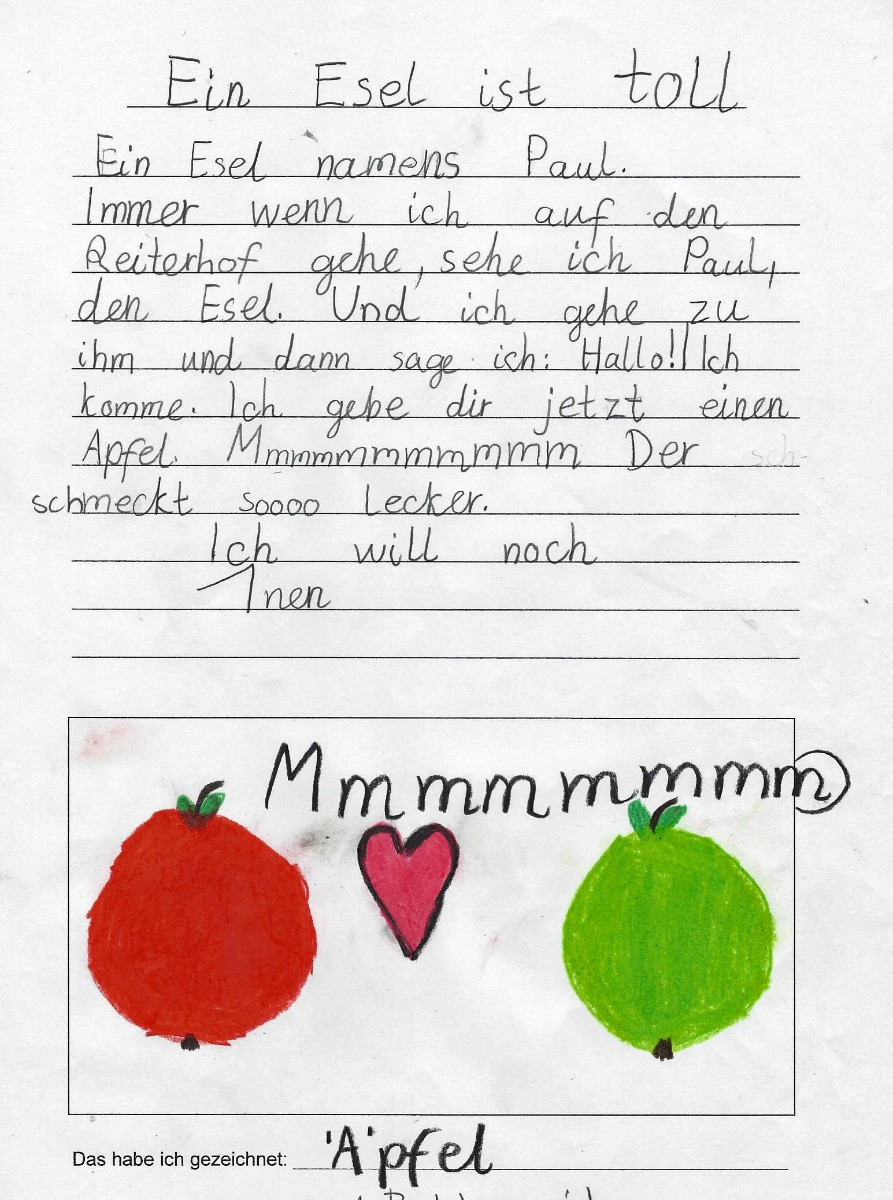 Ein Esel ist toll
Ein Esel namens Paul.
Immer wenn ich auf den
Reiterhof gehe, sehe ich Paul,
den Esel. Und ich gehe zu
ihm und dann sage ich: Hallo! Ich
komme. Ich gebe dir jetzt einen
Apfel. Mmmmmmmmmmm Der sch-
schmeckt soooo lecker.
Ich will noch
1nen
Mmmmmmmm
Das habe ich gezeichnet: Äpfel